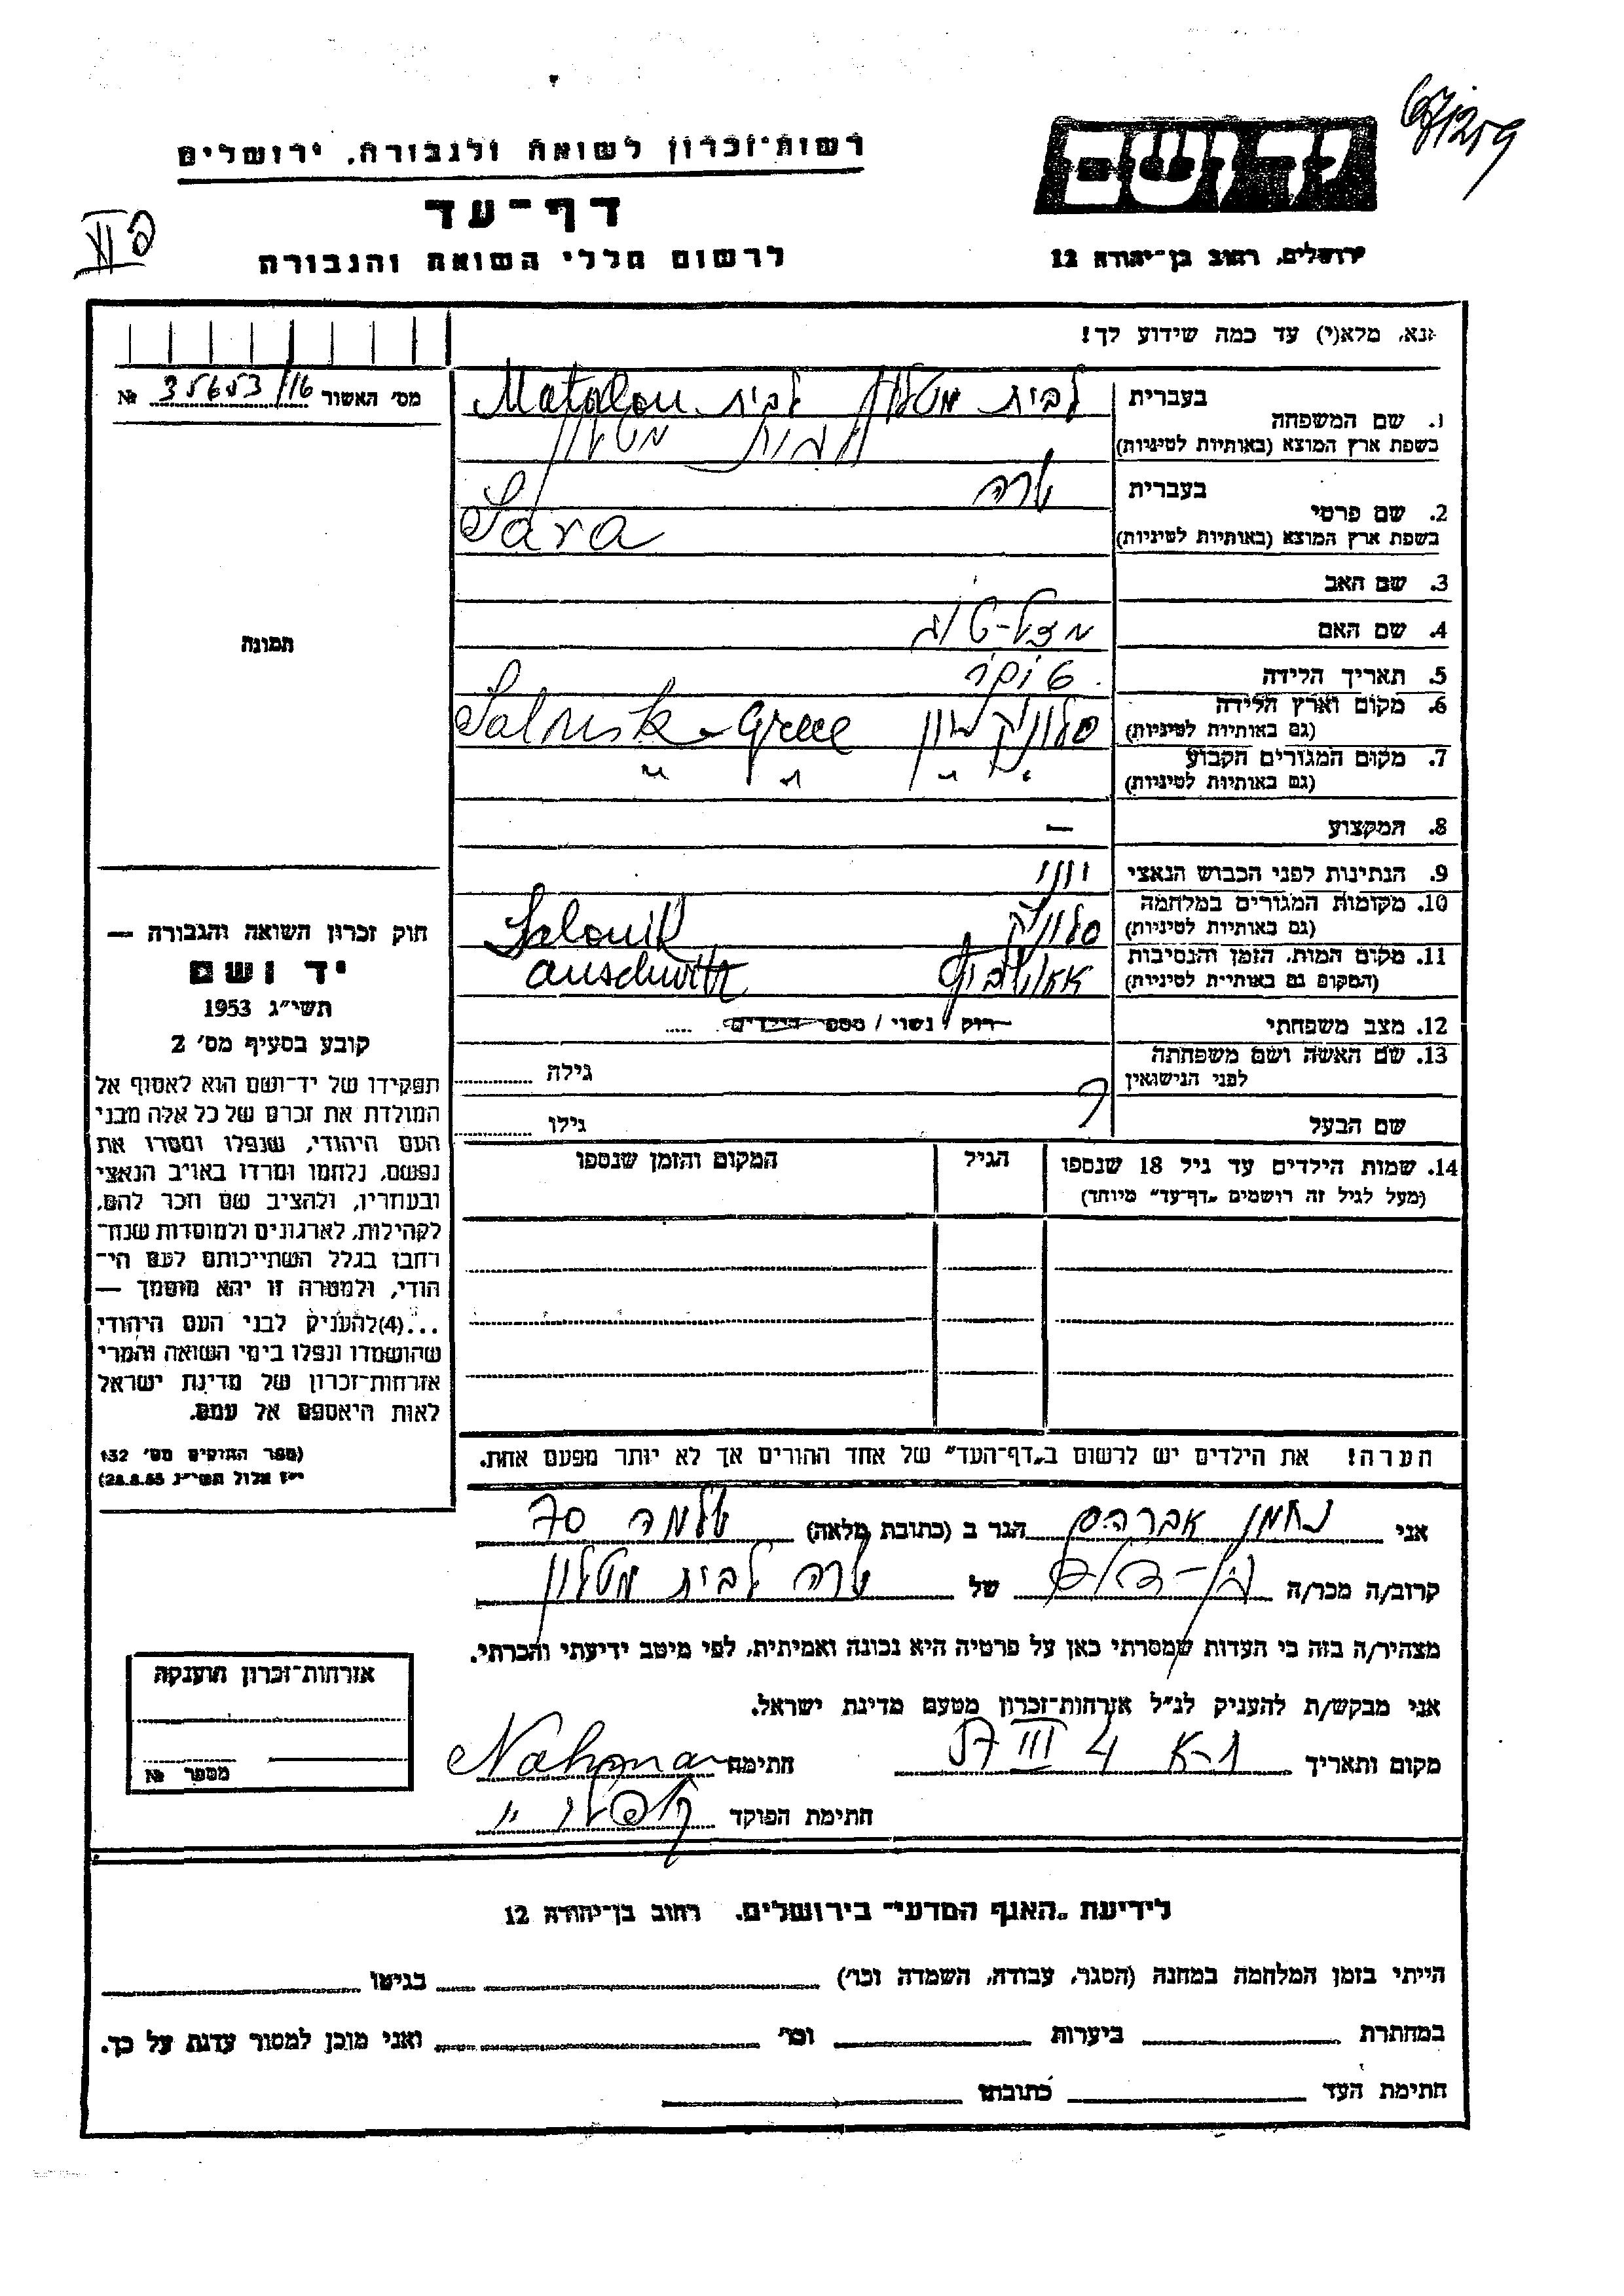 67/259
יד ושם
רשות־זכרון לשואה ולגבורה, ירושלים
דף־עד
VI
לרשום חללי השואה והגבורה
ירושלים, רחוב בן־יהודה 12
נא, מלא(י) עד כמה שידוע לך!
מס' האשור 35653/16 №
בעברית
לבית מטלון לבית Matalon
1. שם המשפחה
בשפת ארץ המוצא (באותיות לטיניות)
לבית מטלון
בעברית
שרה
2. שם פרטי
בשפת ארץ המוצא (באותיות לטיניות)
Sara
3. שם האב
4. שם האם
מזל-טוב
5. תאריך הלידה
6. מקום וארץ הלידה
(גם באותיות לטיניות)
סלוניק יון
7. מקום המגורים הקבוע
(גם באותיות לטיניות)
" " " "
8. המקצוע
—
9. הנתינות לפני הכבוש הנאצי
יוון
10. מקומות המגורים במלחמה
(גם באותיות לטיניות)
סלוניק Salonik
11. מקום המות, הזמן והנסיבות
(המקום גם באותיות לטיניות)
אאושביץ auschwitz
12. מצב משפחתי
רוק / נשוי / מספר הילדים
13. שם האשה ושם משפחתה
לפני הנישואין
גילה
שם הבעל
גילו
14. שמות הילדים עד גיל 18 שנספו
(מעל לגיל זה רושמים „דף־עד” מיוחד)
הגיל
המקום והזמן שנספו
הערה! את הילדים יש לרשום ב„דף־העד” של אחד ההורים אך לא יותר מפעם אחת.
תמונה
חוק זכרון השואה והגבורה —
יד ושם
תשי״ג 1953
קובע בסעיף מס' 2
תפקידו של יד־ושם הוא לאסוף אל
המולדת את זכרם של כל אלה מבני
העם היהודי, שנפלו ומסרו את
נפשם, נלחמו ומרדו באויב הנאצי
ובעוזריו, ולהציב שם וזכר להם,
לקהילות, לארגונים ולמוסדות שנח־
רבו בגלל השתייכותם לעם הי־
הודי, ולמטרה זו יהא מוסמך —
...(4)להעניק לבני העם היהודי
שהושמדו ונפלו בימי השואה והמרי
אזרחות־זכרון של מדינת ישראל
לאות היאספם אל עמם.
(ספר החוקים מס' 132
י״ז אלול תשי״ג 28.8.53)
אני נחמן אברהם הגר ב (כתובת מלאה) שלמה 70
קרוב/ה מכר/ה בן-דוד של שרה לבית מטלון
מצהיר/ה בזה כי העדות שמסרתי כאן על פרטיה היא נכונה ואמיתית, לפי מיטב ידיעתי והכרתי.
אני מבקש/ת להעניק לנ״ל אזרחות־זכרון מטעם מדינת ישראל.
מקום ותאריך ת-א 4 III 57 חתימה Nahman
חתימת הפוקד
אזרחות־זכרון הוענקה
מספר №
לידיעת „האגף המדעי” בירושלים, רחוב בן־יהודה 12
הייתי בזמן המלחמה במחנה (הסגר, עבודה, השמדה וכו') בגיטו
במחתרת ביערות וכו' ואני מוכן למסור עדות על כך.
חתימת העד כתובתו